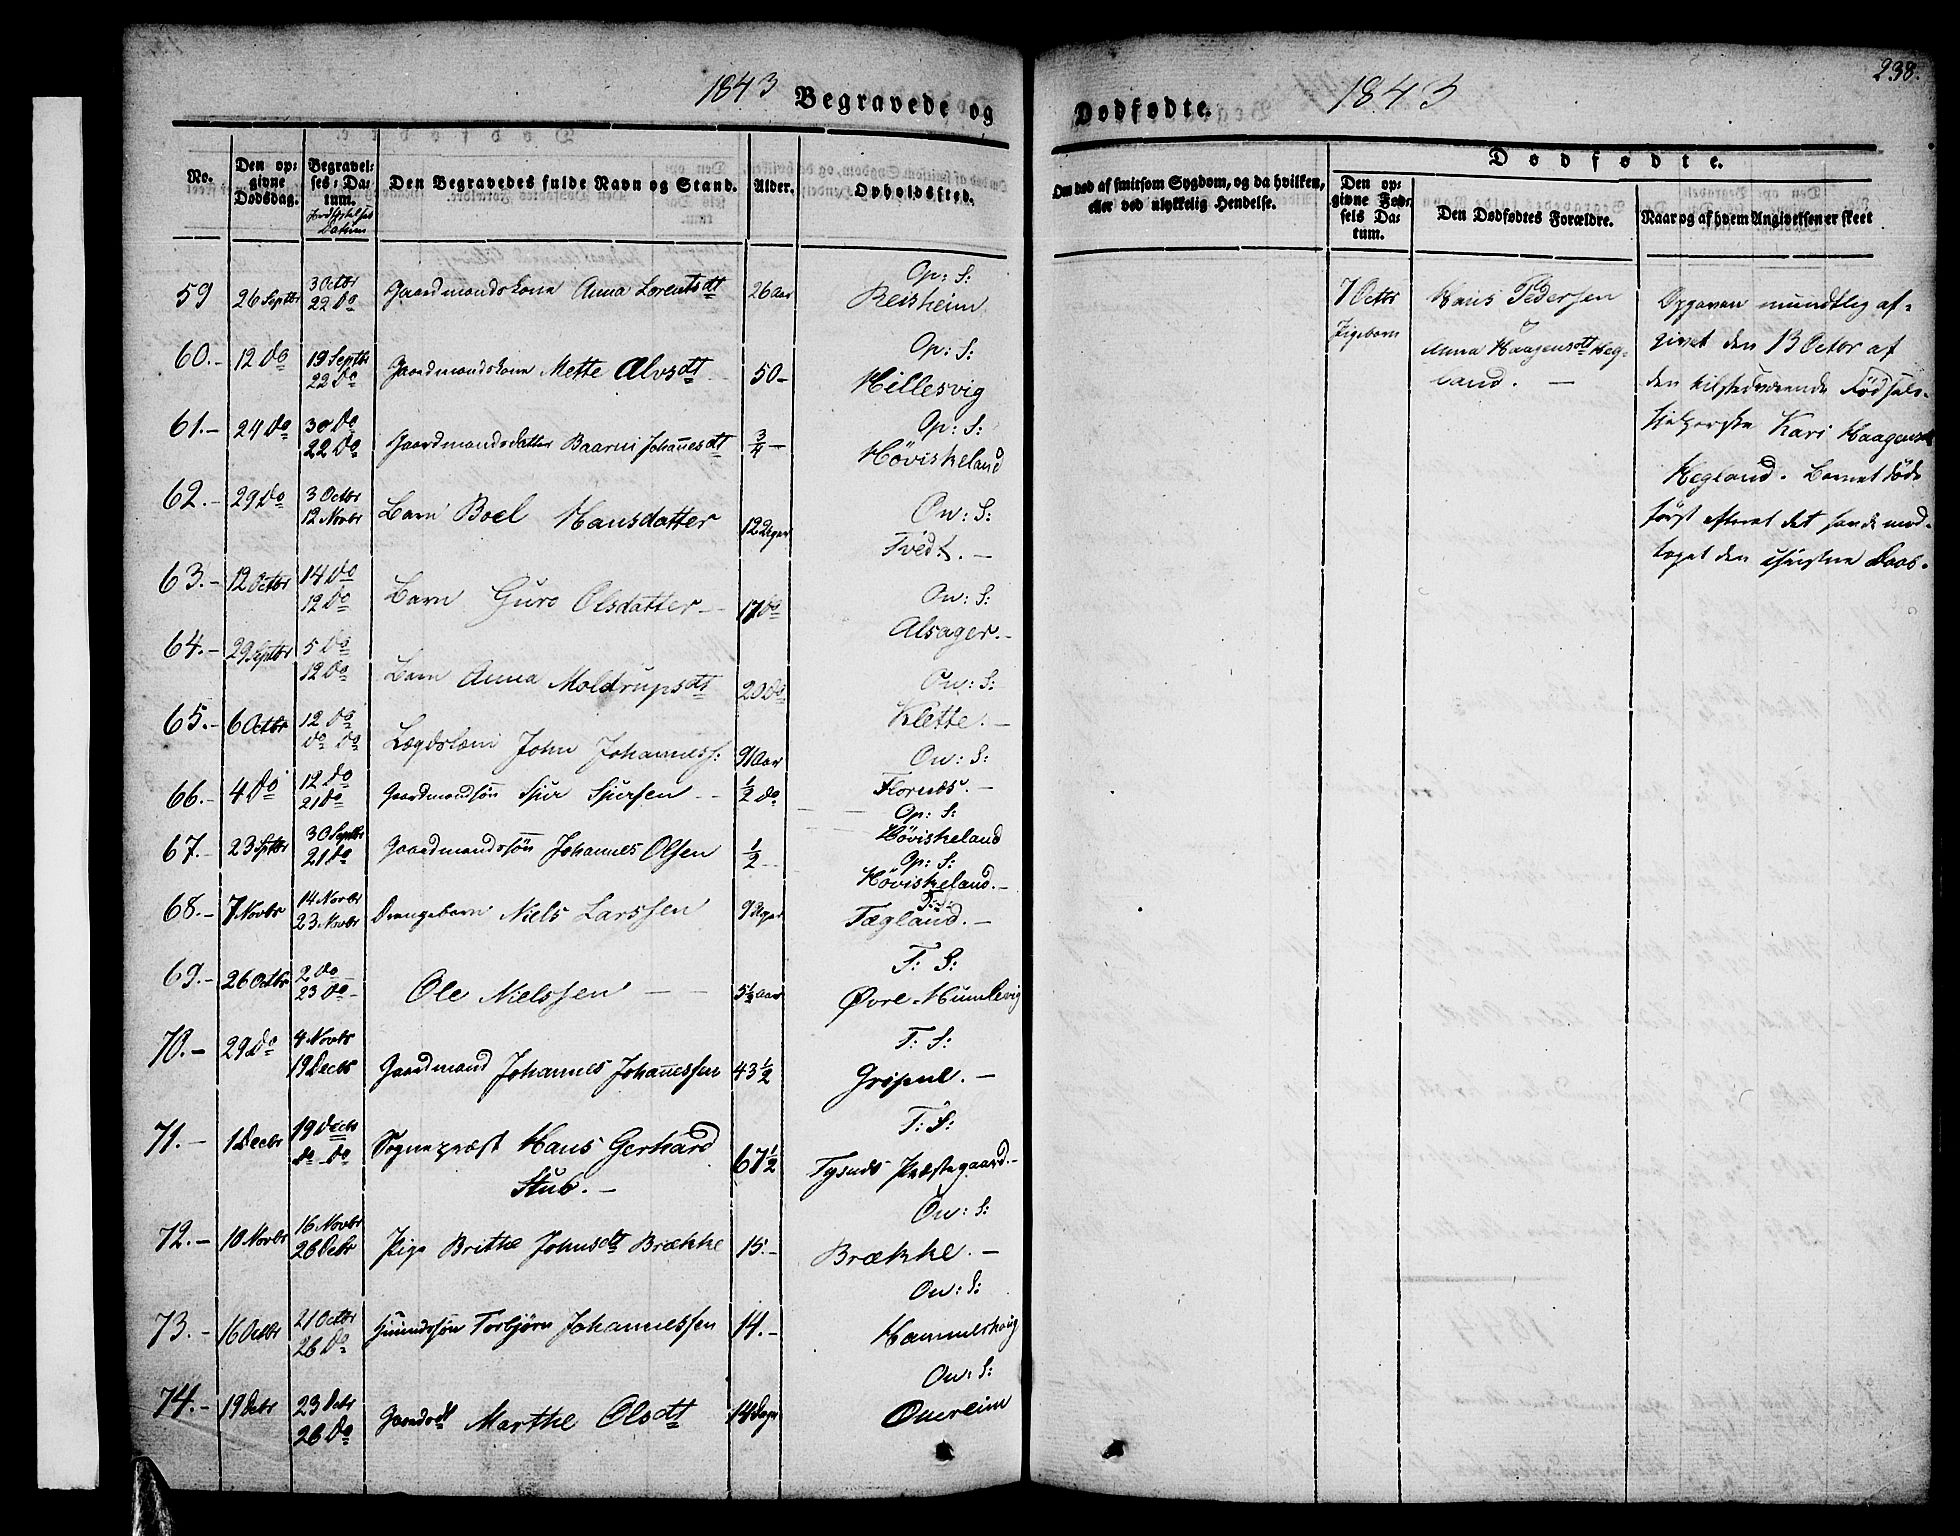 1843 Begravede og
Dødfødte. 1843 238.
No. Den opgivne Dødsdag. Begravelses-Datum. Jordfæstelses Datum Den Begravedes fulde Navn og Stand. Alder. Opholdssted.
Om død af smitsom Sygdom, og da hvilken, eller ved ulykkelig Hendelse. Dødfødte. Den opgivne Fødsels Datum. Den Dødfødtes Forældre. Naar og af hvem Angivelsen er skeet
59 26 Septbr 3 Octbr 22 Do Gaardmandskone Anna Lorentsdt 26 Aar Op: S: Reisheim
60.- 12 Do 19 Septbr 22 Do Gaardmandskone Mette Alvsdt 50- Op: S: Hillesvig
61.- 24 Do 30 Do 22 Do Gaardmandsdatter Baarni Johannesdt 3/4 - Op: S: Höviskeland
62.- 29 Do 3 Octbr 12 Novbr Barn Boel Hansdatter 12 Uger On: S: Tvedt. -
63.- 12 Octbr 14 Do 12 Do Barn Guro Olsdatter 17 Do On: S: Alsager. -
64.- 29 Septbr 5 Do 12 Do Barn Anna Moldrupsdt 20 Do On: S: Klette. -
65.- 6 Octbr 12 Do Do Do Lægdslem John Johanness: 91 Aar On: S: Flornes. -
66.- 4 Do 12 Do 21 Do Gaardmandssön Sjur Sjursen 1/2 Do Op: S: Höviskeland
67.- 23 Septbr 30 Septbr 21 Do Gaardmandssön Johannes Olsen 1/2 Op: S: Höviskeland. -
68.- 7 Novbr 14 Novbr 23 Novbr Drengebarn Niels Larssen 9 Uger T: S: Tægland. -
69.- 26 Octbr 2 Do 23 Do Ole Nielssen 5 1/2 Aar T: S: Øvre Humlevig
70.- 29 Do 4 Novbr 19 Decbr Gaardmand Johannes Johannessen 43 1/2 T: S: -
71.- 1 Decbr 19 Decbr Do Do Sognepræst Hans Gerhard Stub. - 67 1/2 T: S: Tysnæs Præstegaard. -
72.- 10 Novbr 16 Novbr 26 Decbr Pige Brithe Johnsdt Brække 15.- On: S: Brække. -
73.- 16 Octbr 21 Octbr 26 Do Torbjørn Johannessen 14.- On: S:
74.- 19 Decbr 23 Decbr 26 Do Marthe Olsdt 14 Dage On: S: Onereim
7 Octbr Pigebarn Hans Pedersen
Anna Haagensdt Hegland. -
Opgaven mundtlig afgivet den 13 Octbr af
den tilstedværende Fødsels-
hjelperske Kari Haagensdt
Hegland. Barnet døde
först efterat det havde mod-
taget den christne Daab.